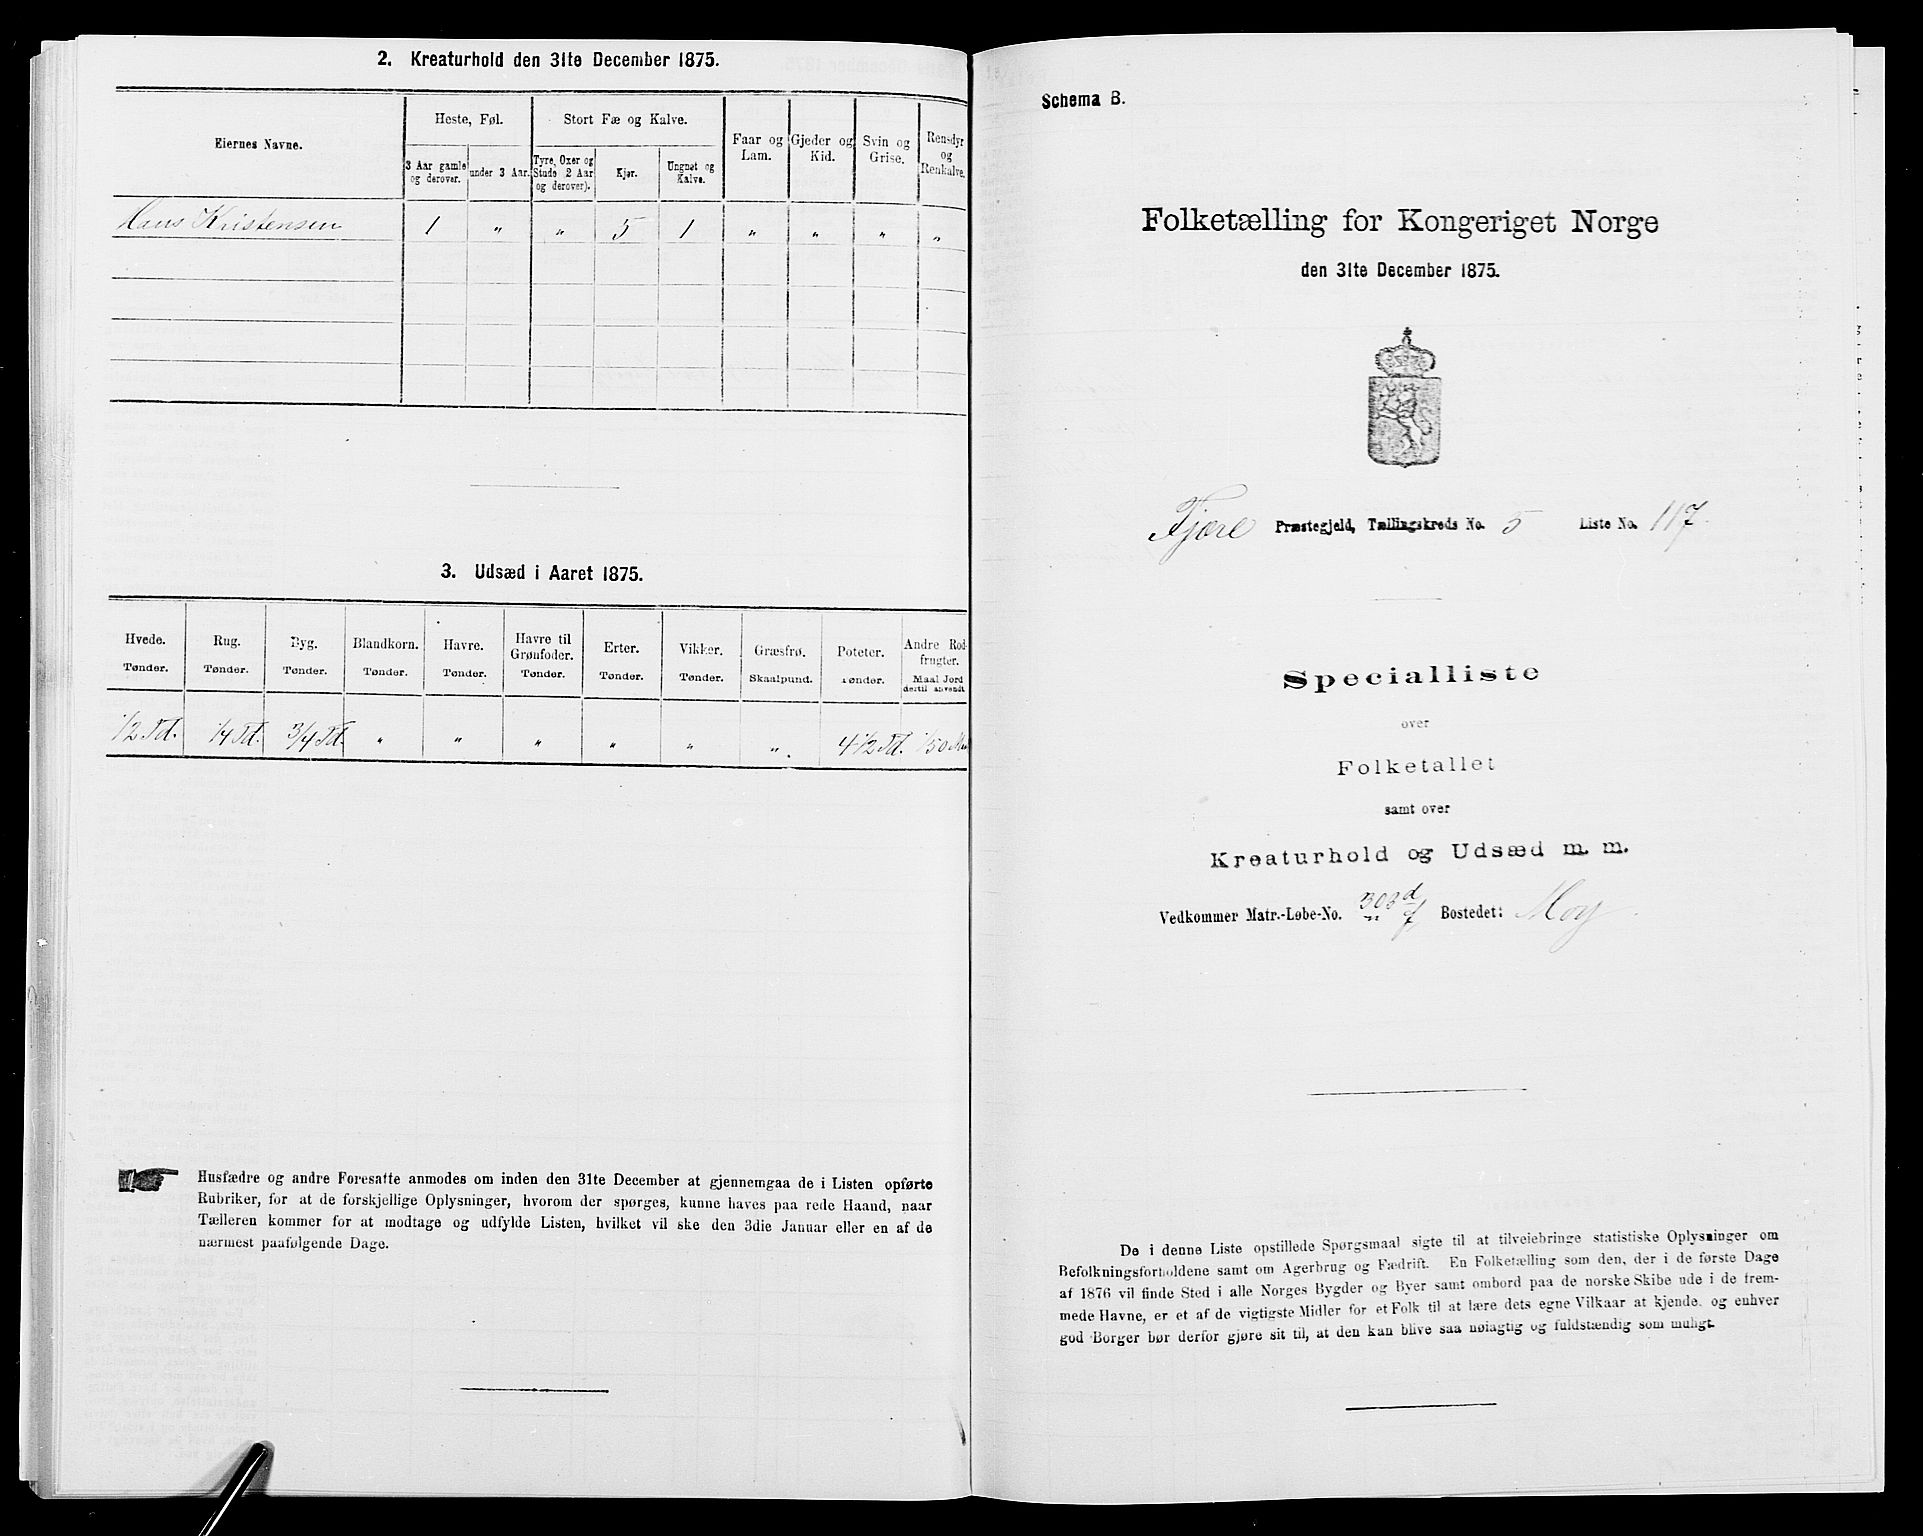 2. Kreaturhold den 31te December 1875.
Eiernes Navne.
Heste, Føl.
Stort Fæ og Kalve.
Faar og
Lam.
Gjeder og
Kid.
Svin og
Grise.
Rensdyr
og
Renkalve.
3 Aar gamle
og derover.
under 3 Aar.
Tyre, Oxer og
Stude 2 Aar
og derover).
Kjør.
Ungnøt og
Kalve.
Hans Kristensen 1 " " 5 1 " " " "
3. Udsæd i Aaret 1875.
Hvede.
Tønder.
Rug.
Tønder.
Byg.
Tønder.
Blandkorn.
Tønder.
Havre.
Tønder.
Havre til
Grønfoder.
Tønder.
Erter.
Tønder.
Vikker.
Tønder.
Græsfrø.
Skaalpund.
Poteter.
Tønder.
Andre Rod-
frugter.
Maal Jord
dertil anvendt
1/2 Td. 1/4 Td. 3/4 Td. " " " " " ". 4 1/2 Td. 1/50
Husfædre og andre Foresatte anmodes om inden den 31te December at gjennemgaa de i Listen opførte
Rubriker, for at de forskjellige Oplysninger, hvorom der spørges, kunne haves paa rede Haand, naar
Tælleren kommer for at modtage og udfylde Listen, hvilket vil ske den 3die Januar eller en af de
nærmest paafølgende Dage.
Schema B.
Folketælling for Kongeriget Norge
den 31te December 1875.
Fjære Præstegjeld, Tællingskreds No. 5 Liste No. 117.
Specialliste
over
Folketallet
samt over
Kreaturhold og Udsæd m. m.
Vedkommer Matr.-Løbe-No. 303 d Bostedet: Moy
" f
De i denne Liste opstillede Spørgsmaal sigte til at tilveiebringe statistiske Oplysninger om
Befolkningsforholdene samt om Agerbrug og Fædrift. En Folketælling som den, der i de første Dage
af 1876 vil finde Sted i alle Norges Bygder og Byer samt ombord paa de norske Skibe ude i de frem-
mede Havne, er et af de vigtigste Midler for et Folk til at lære dets egne Vilkaar at kjende. og enhver
god Borger bør derfor gjøre sit til, at den kan blive saa nøiagtig og fuldstændig som muligt.